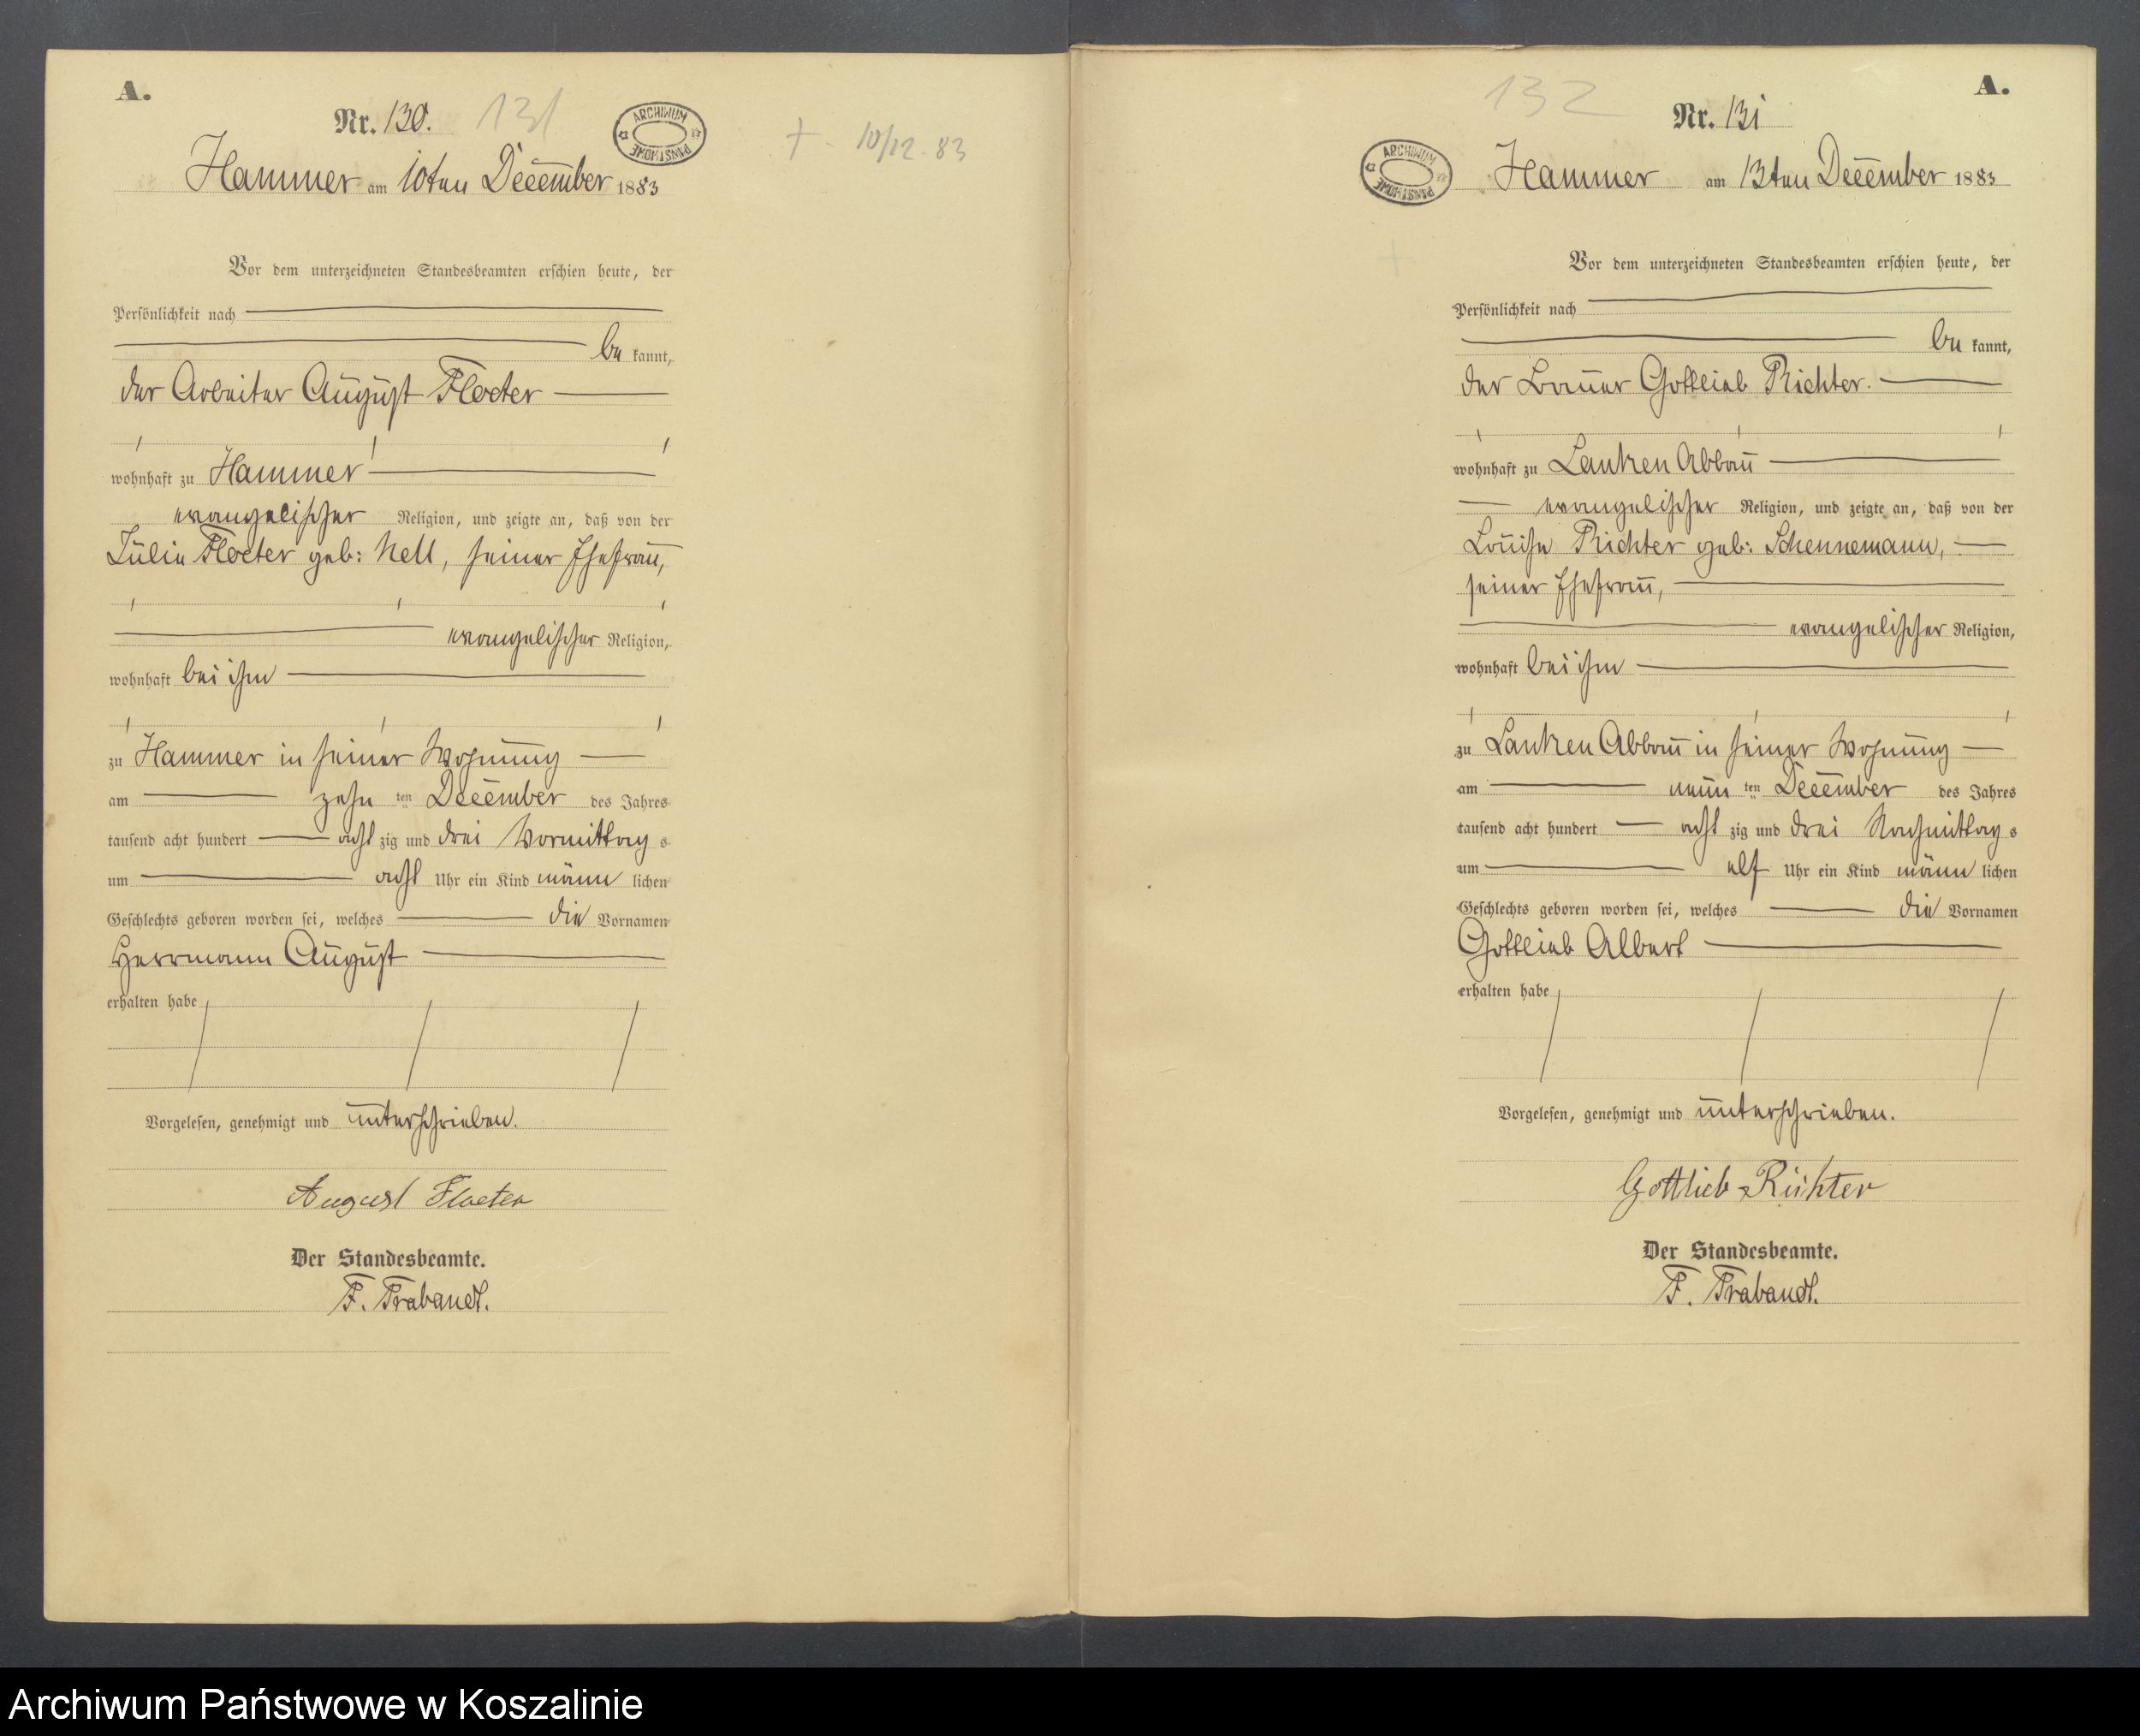 A.
Nr. 130. 131
ARCHIWUM PAŃSTWOWE
+ 10/12. 83
Hammer am 10ten December 1883
Vor dem unterzeichneten Standesbeamten erschien heute, der
Persönlichkeit nach
be kannt,
der Arbeiter August Floeter
wohnhaft zu Hammer
evangelischer Religion, und zeigte an, daß von der
Julie Floeter geb: Nell, seiner Ehefrau,
evangelischer Religion,
wohnhaft bei ihm
zu Hammer in seiner Wohnung
am zehn ten December des Jahres
tausend acht hundert acht zig und drei Vormittag s
um acht Uhr ein Kind männ lichen
Geschlechts geboren worden sei, welches die Vornamen
Herrmann August
erhalten habe
Vorgelesen, genehmigt und unterschrieben.
August Floeter
Der Standesbeamte.
F. Trabandt.
132
A.
Nr. 131
ARCHIWUM PAŃSTWOWE
Hammer am 13ten December 1883
Vor dem unterzeichneten Standesbeamten erschien heute, der
Persönlichkeit nach
be kannt,
der Bauer Gottlieb Richter.
wohnhaft zu Lanken Abbau
evangelischer Religion, und zeigte an, daß von der
Louise Richter geb: Schennemann,
seiner Ehefrau,
evangelischer Religion,
wohnhaft bei ihm
zu Lanken Abbau in seiner Wohnung
am neun ten December des Jahres
tausend acht hundert acht zig und drei Nachmittag s
um elf Uhr ein Kind männ lichen
Geschlechts geboren worden sei, welches die Vornamen
Gottlieb Albert
erhalten habe
Vorgelesen, genehmigt und unterschrieben.
Gottlieb Richter
Der Standesbeamte.
F. Trabandt.
Archiwum Państwowe w Koszalinie